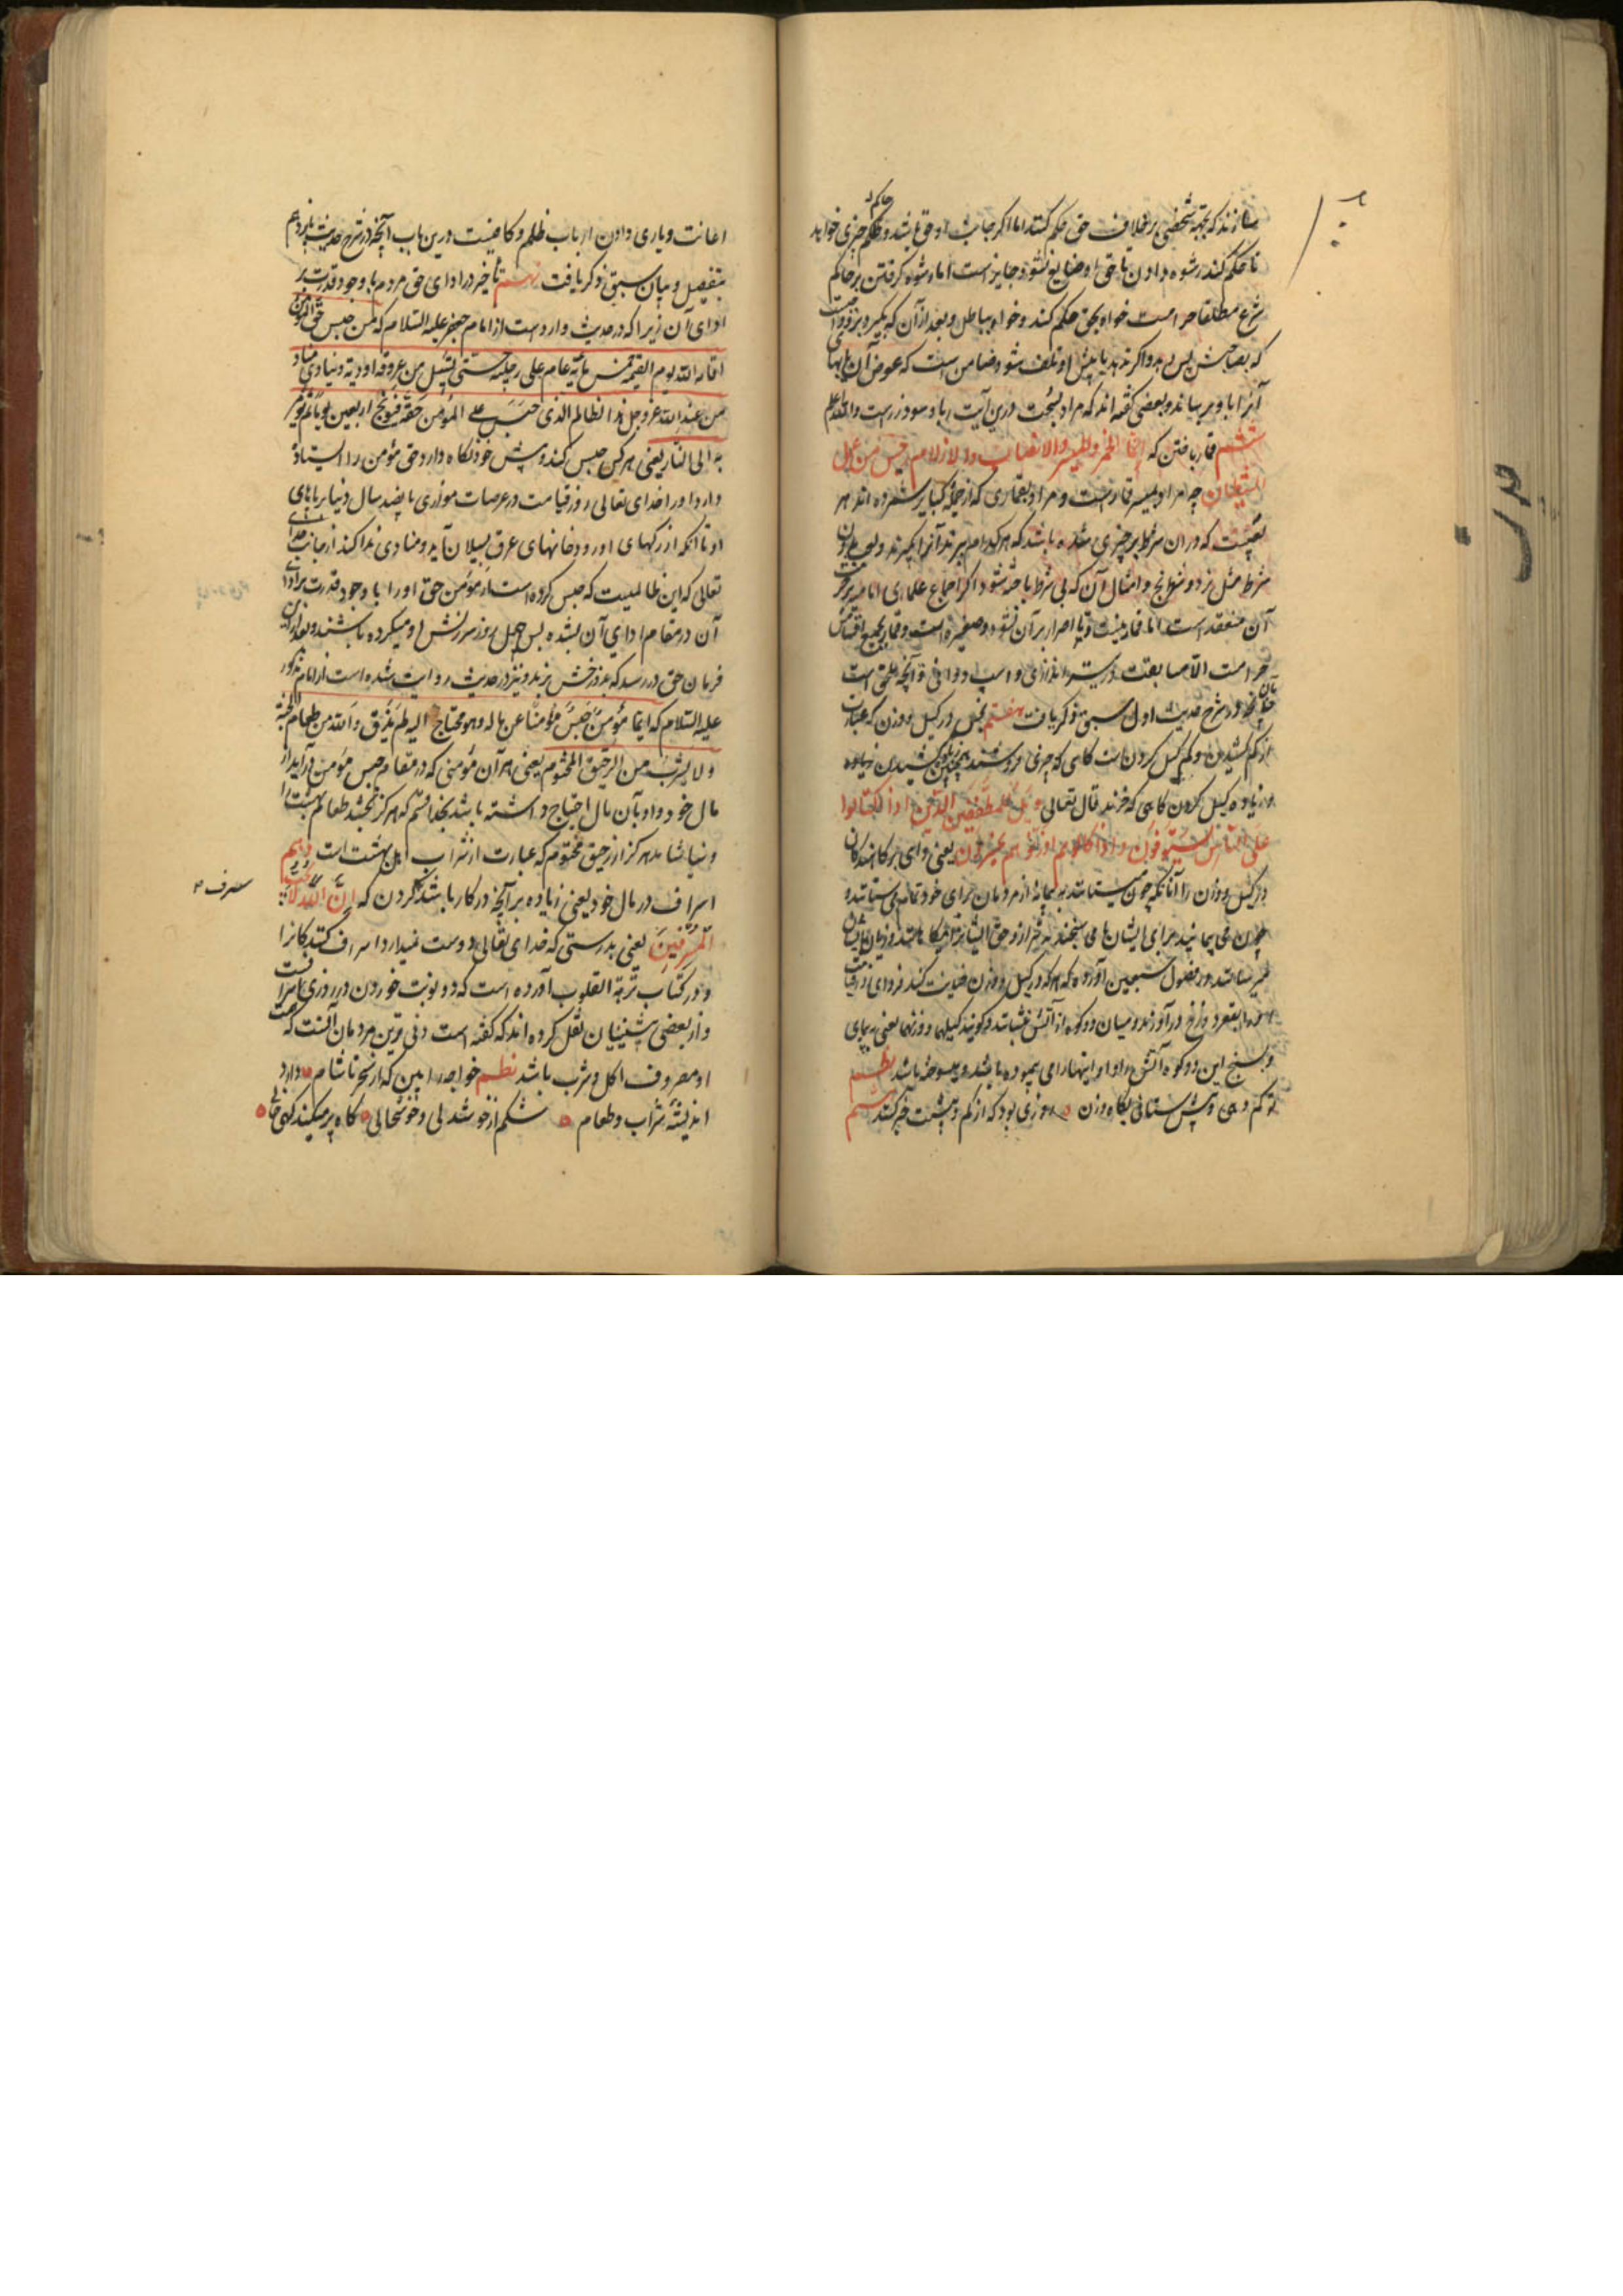 سازند که بجهة شخصی بر خلاف حق حکم کند اما اگر جانب او حق باشد و حاکم چیزی خواهد
تا حکم کند رشوه دادن تا حق او ضایع نشود جایز است اما رشوه گرفتن بر حاکم
شرع مطلقا حرامست خواه بحق حکم کند و خواه بباطل و بعد از آن که بگیرد بر او واجبست
که بصاحبش پس دهد و اگر ندهد یا پیش او تلف شود ضامن است که عوض آن یا بهای
آنرا باو برساند و بعضی گفته اند که مراد بسحت درین آیت ربا و سود زرست والله اعلم
ششم قمار باختن که انما الخمر والمیسر والانصاب والازلام رجس من عمل
الشیطان چه مراد بمیسر قمارست و مراد بقماری که از جمله کبایر شمرده اند هر
لعبیست که در آن شرط بر چیزی شده باشد که هر کدام ببرند آنرا بگیرند و لعب بدون
شرط مثل نرد و شطرنج و امثال آن که بی شرط باخته شود اگر اجماع علمای امامیه بر حرمت
آن منعقد است اما قمار نیست و تا اصرار بر آن نشود صغیره است و قمار بجمیع اقسامش
حرامست الا مسابقت در تیر اندازی و اسب دوانی و آنچه ملحق است
بآن چنانچه در شرح حدیث اول سبق ذکر یافت هفتم بخس در کیل و وزن که عبارت
از کم کشیدن و کم کیل کردنست کاهی که چیزی فروشند و همچنین کشیدن زیاده
و زیاده کیل کردن کاهی که خرند قال تعالی ویل للمطففین الذین اذا اکتالوا
علی الناس یستوفون و اذا کالوهم او وزنوهم یخسرون یعنی وای بر کاهندکان
در کیل و وزن را آنانکه چون میستانند به پیمانه از مردمان برای خود تمام می ستانند و
چون می پیمایند برای ایشان یا می سنجند
میرسانند در فصول سبعین آورده که هر که در کیل و وزن خیانت کند فردای قیامت
او را بقعر دوزخ در آورند و میان دو کوه از آتش بنشانند و کویند کیلهما و زنهما یعنی بپیمای
و بسنج این دو کوه آتش را و او اینها را می پیموده باشد و میسوخته باشد نظم
تو کم دهی و بیش ستانی بکاه وزن روزی بود که از کم و بیشت خبر کنند هشتم
اعانت و یاری دادن ارباب ظلم و کافیست درین باب آنچه در شرح حدیث پانزدهم
بتفصیل و بیان سبق ذکر یافت نهم تأخیر در ادای حق مردم با وجود قدرت بر
ادای آن زیرا که در حدیث وارد است از امام جعفر علیه السلام که من حبس حق المؤمن
اقامه الله یوم القیمة خمس مائة عام علی رجلیه حتی یسیل من عرقه اودیة و ینادی مناد
من عند الله عز و جل هذا الظالم الذی حبس علی المؤمن حقه فیوبخ اربعین یوما ثم یؤمر
به الی النار یعنی هر کس حبس کند و پیش خود نکاه دارد حق مؤمن را ایستاده
دارد او را خدای تعالی روز قیامت در عرصات موازی پانصد سال دنیا بر پاهای
او تا آنکه از رکهای او رودخانهای عرق بسیلان آید و منادی ندا کند از جانب خدای
تعالی که این ظالمیست که حبس کرده است از مؤمن حق او را با وجود قدرت بر ادای
آن در مقام ادای آن نشده پس چهل روز سرزنش او میکرده باشند و بعد از آن
فرمان حق در رسد که بدوزخش برند و نیز در حدیث روایت شده است از امام مذکور
علیه السلام که ایما مؤمن حبس مؤمنا عن ماله و هو محتاج الیه لم یذق والله من طعام الجنة
و لا یشرب من الرحیق المختوم یعنی هر آن مؤمنی که در مقام حبس مؤمن در آید از
مال خود و او بآن مال احتیاج داشته باشد بخدا قسم که هرگز نچشد طعام بهشت را
و نیاشامد هرگز از رحیق مختوم که عبارت از شراب اهل بهشت است دهم
اسراف در مال خود یعنی زیاده بر آنچه در کار باشد صرف کردن که ان الله لا یحب
المسرفین یعنی بدرستی که خدای تعالی دوست نمیدارد اسراف کنندکانرا
و در کتاب تربة القلوب آورده است که دو نوبت خوردن در روزی اسرافست
و از بعضی پیشینیان نقل کرده اند که گفته است دنی ترین مردمان آنست که همت
او مصروف اکل و شرب باشد نظم خواجه را بین که از سحر تا شام دارد
اندیشه شراب و طعام شکم از خوشدلی و خوشحالی گاه پر میکند گهی خالی
صرف